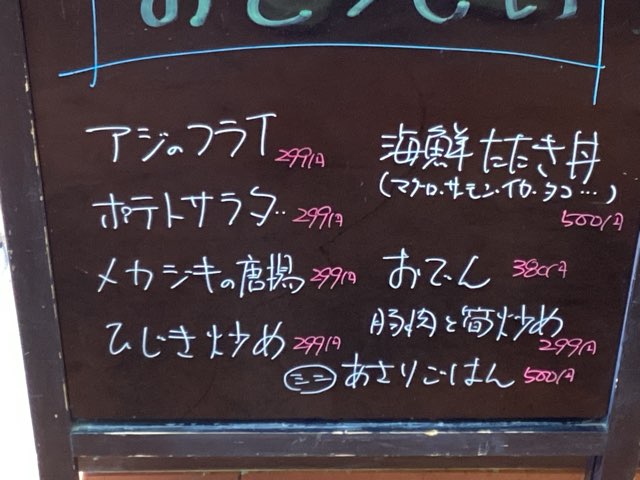 アジのフライ 299円
ポテトサラダ 299円
メカジキの唐揚 299円
ひじき炒め 299円
海鮮たたき丼
(マグロ・サーモン・イカ・タコ…)
500円
おでん 380円
豚肉と筍炒め
299円
ミニ あさりごはん 500円